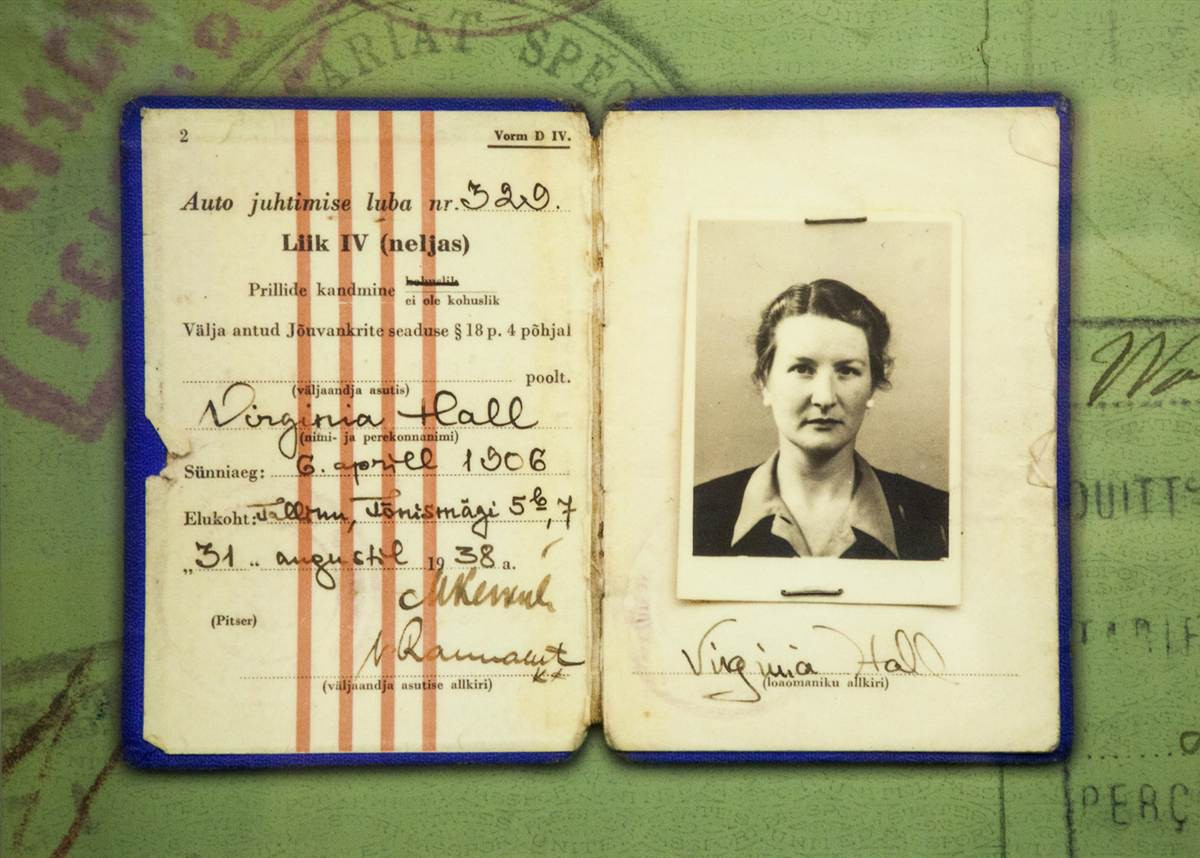 ARIAT SPEC
2
Vorm D IV.
Auto juhtimise luba nr. 329.
Liik IV (neljas)
Prillide kandmine kohuslik
ei ole kohuslik
Välja antud Jõuvankrite seaduse § 18 p. 4 põhjal
poolt.
(väljaandja asutis)
Virginia Hall
(nimi- ja perekonnanimi)
Sünniaeg: 6. aprill 1906
Elukoht: Tallinn, Tõnismägi 5b, 7
„31" augustil 1938 a.
(Pitser)
(väljaandja asutise allkiri)
Virginia Hall
(loaomaniku allkiri)
QUITT
TARIF
PERÇ